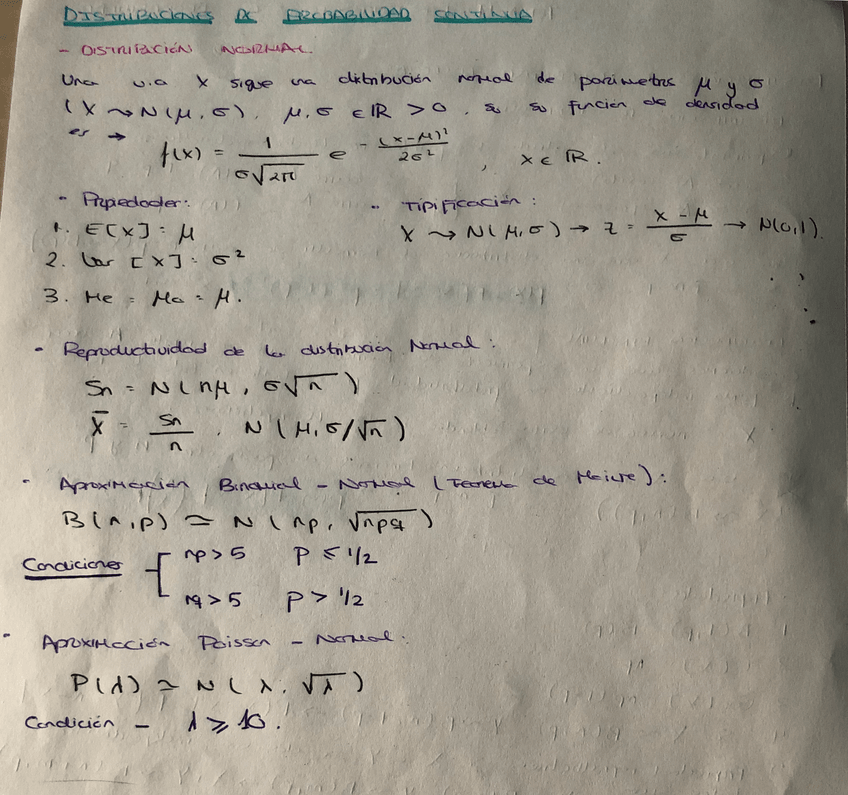 DISTRIBUCIONES DE PROBABILIDAD CONTINUA
- DISTRIBUCIÓN NORMAL.
Una v.a X sigue una distribución normal de parámetros μ y σ
(X ⤳ N(μ, σ), μ, σ ∈ ℝ > 0, si su función de densidad
es → f(x) = 1/(σ√2π) e^-(x-μ)²/2σ² , x ∈ ℝ.
• Propiedades:
1. E[X] = μ
2. Var [X] = σ²
3. Me = Mo = μ.
• Tipificación:
X ⤳ N(μ,σ) → Z = (X - μ)/σ → N(0,1).
• Reproductividad de la distribución Normal:
Sn = N(nμ, σ√n)
X̄ = Sn/n . N(μ, σ/√n)
• Aproximación Binomial - Normal (Teorema de Moivre):
B(n,p) ≃ N(np, √npq)
Condiciones { np > 5 p ≤ 1/2
nq > 5 p > 1/2
• Aproximación Poisson - Normal:
P(λ) ≃ N(λ, √λ)
Condición - λ ≥ 10.